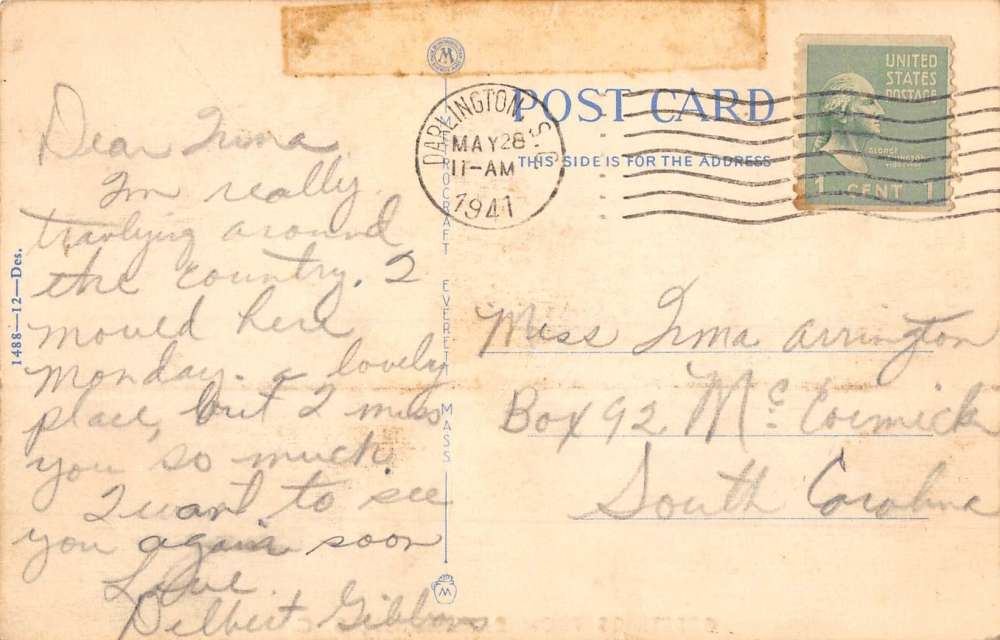 Dear Irma
Im really
travlying around
the country. I
moved here
Monday. a lovely
place, but I miss
you so much.
I want to see
you again soon
Love
Delbert Gibbons
1488—12—Des.
METROCRAFT EVERETT MASS
DARLINGTON, S.C.
MAY 28
11-AM
1941
POST CARD
THIS SIDE IS FOR THE ADDRESS
UNITED
STATES
POSTAGE
GEORGE
WASHINGTON
1 CENT 1
Miss Irma Arrington
Box 92 Mc Cormick
South Carolina